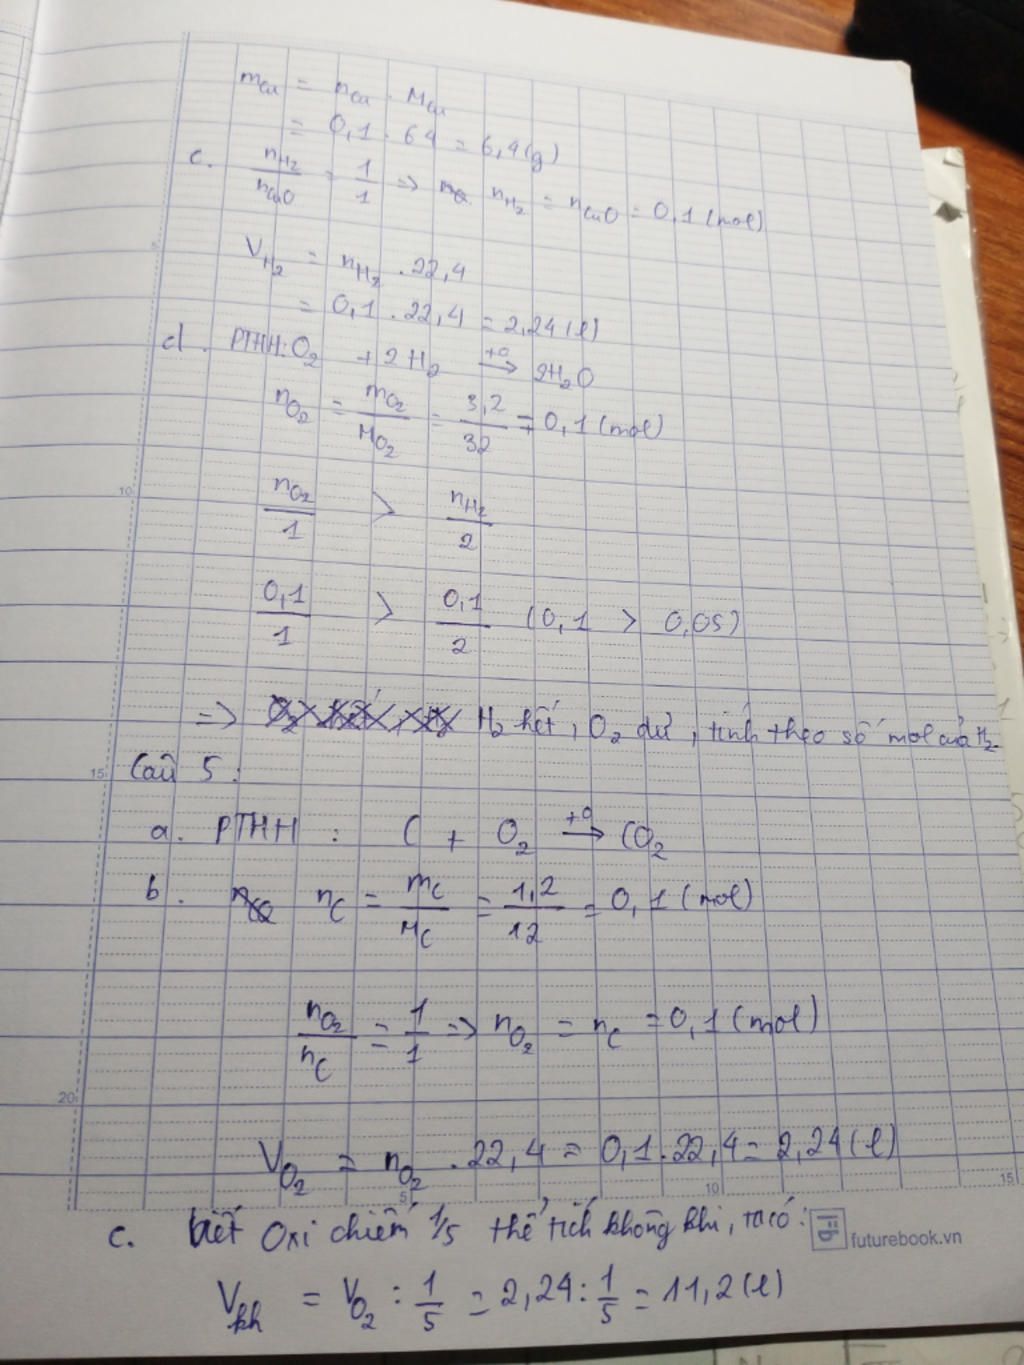 mCu = nCu . MCu
= 0,1 . 64 = 6,4 (g)
c. nH2/nCuO = 1/1 => nH2 = nCuO = 0,1 (mol)
VH2 = nH2 . 22,4
= 0,1 . 22,4 = 2,24 (l)
d. PTHH: O2 + 2H2 →(t0) 2H2O
nO2 = mO2/MO2 = 3,2/32 = 0,1 (mol)
nO2/1 > nH2/2
0,1/1 > 0,1/2 (0,1 > 0,05)
=> H2 hết, O2 dư, tính theo số mol của H2
Câu 5:
a. PTHH: C + O2 →(t0) CO2
b. nC = mC/MC = 1,2/12 = 0,1 (mol)
nO2/nC = 1/1 => nO2 = nC = 0,1 (mol)
VO2 = nO2 . 22,4 = 0,1 . 22,4 = 2,24 (l)
c. biết Oxi chiếm 1/5 thể tích không khí, ta có:
futurebook.vn
Vkh = VO2 : 1/5 = 2,24 : 1/5 = 11,2 (l)
5
10
15
20
5
10
15